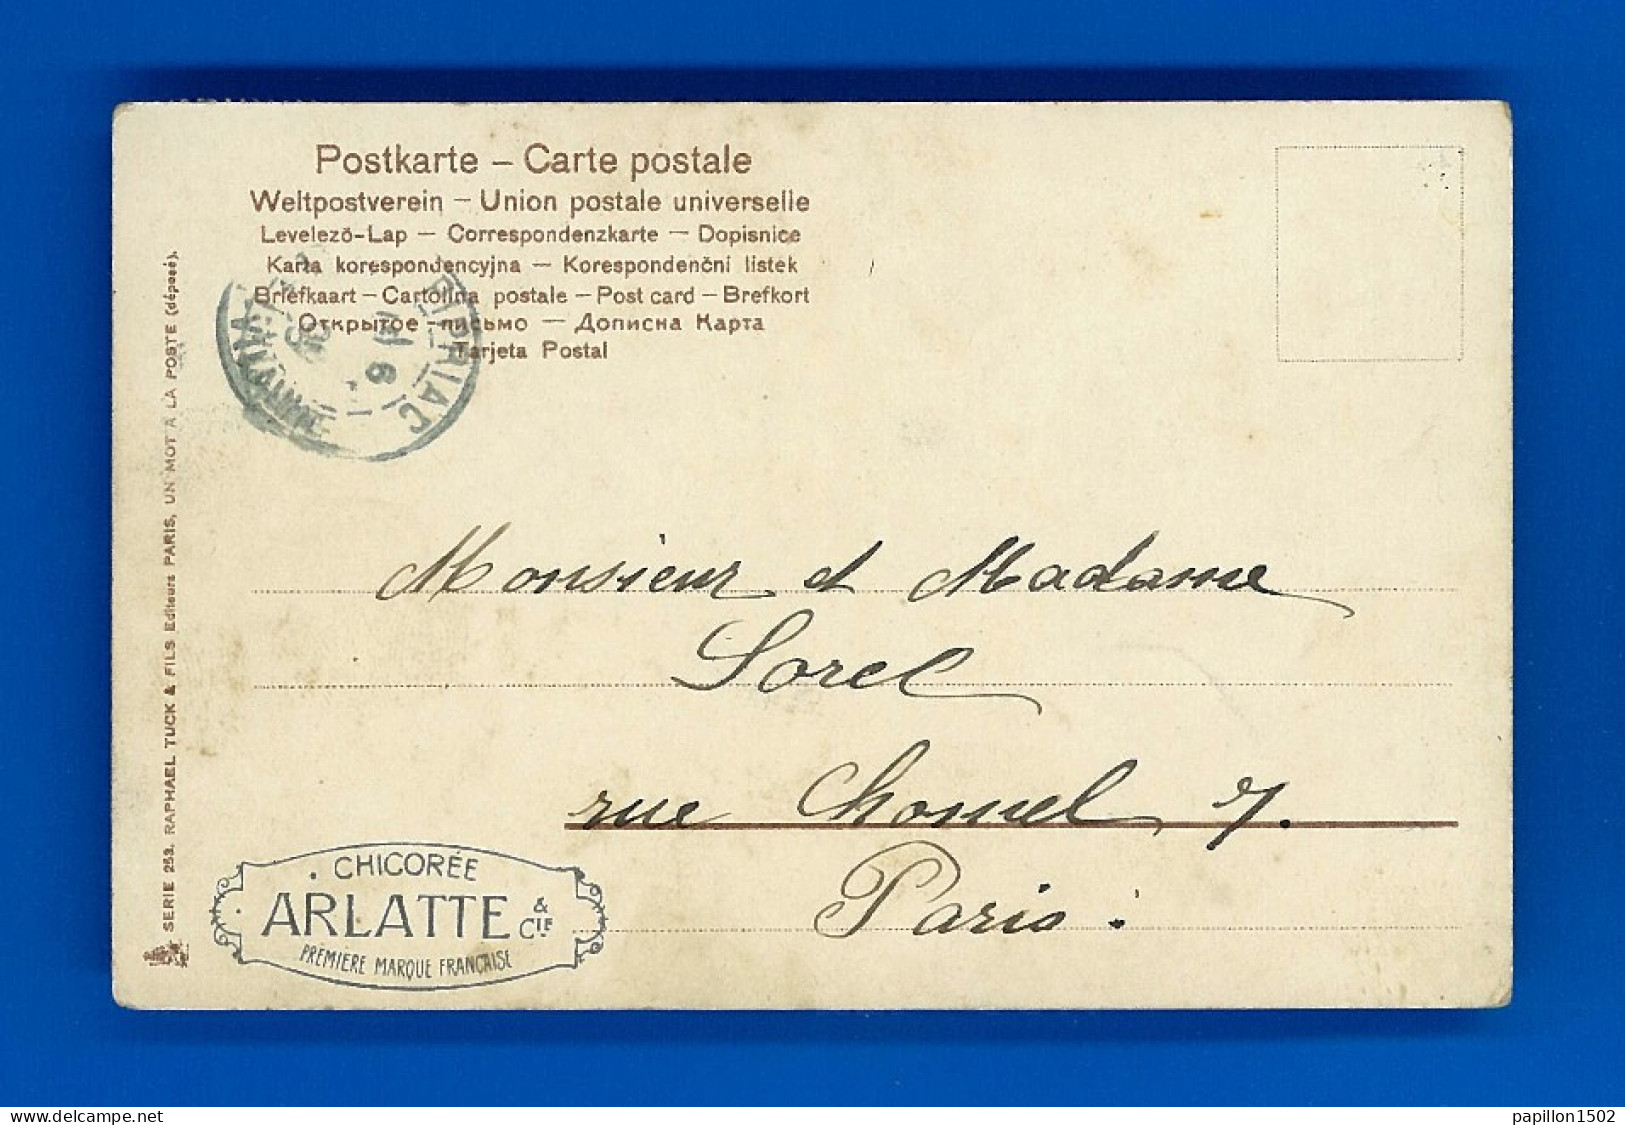 Postkarte – Carte postale
Weltpostverein – Union postale universelle
Levelezō-Lap – Correspondenzkarte – Dopisnice
Karta korespondencyjna – Korespondenční listek
Briefkaart – Cartolina postale – Post card – Brefkort
Открытое письмо – Дописна Карта
Tarjeta Postal
SERIE 253. RAPHAEL TUCK & FILS Editeurs PARIS, UN MOT A LA POSTE (déposé).
Monsieur et Madame
Sorel
rue Chomel 7.
Paris.
CHICORÉE
ARLATTE & CIE
PREMIÈRE MARQUE FRANÇAISE
delcampe.net
papillon1502